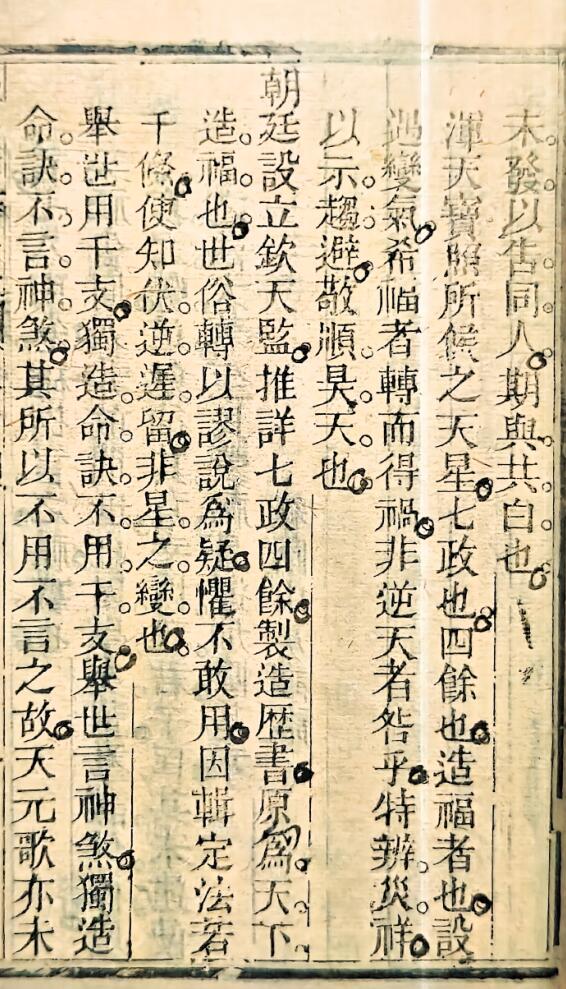 未發以告同人期與共白也
渾天寶照所候之天星七政也四餘也造福者也設
遇變氣希福者轉而得禍非逆天者咎乎特辨災祥
以示趨避敬順昊天也
朝廷設立欽天監推詳七政四餘製造歷書原爲天下
造福也世俗轉以謬說爲疑懼不敢用因輯定法若
千條使知伏逆遲留非星之變也
舉世用干支獨造命訣不用干支舉世言神煞獨造
命訣不言神煞其所以不用不言之故天元歌亦未